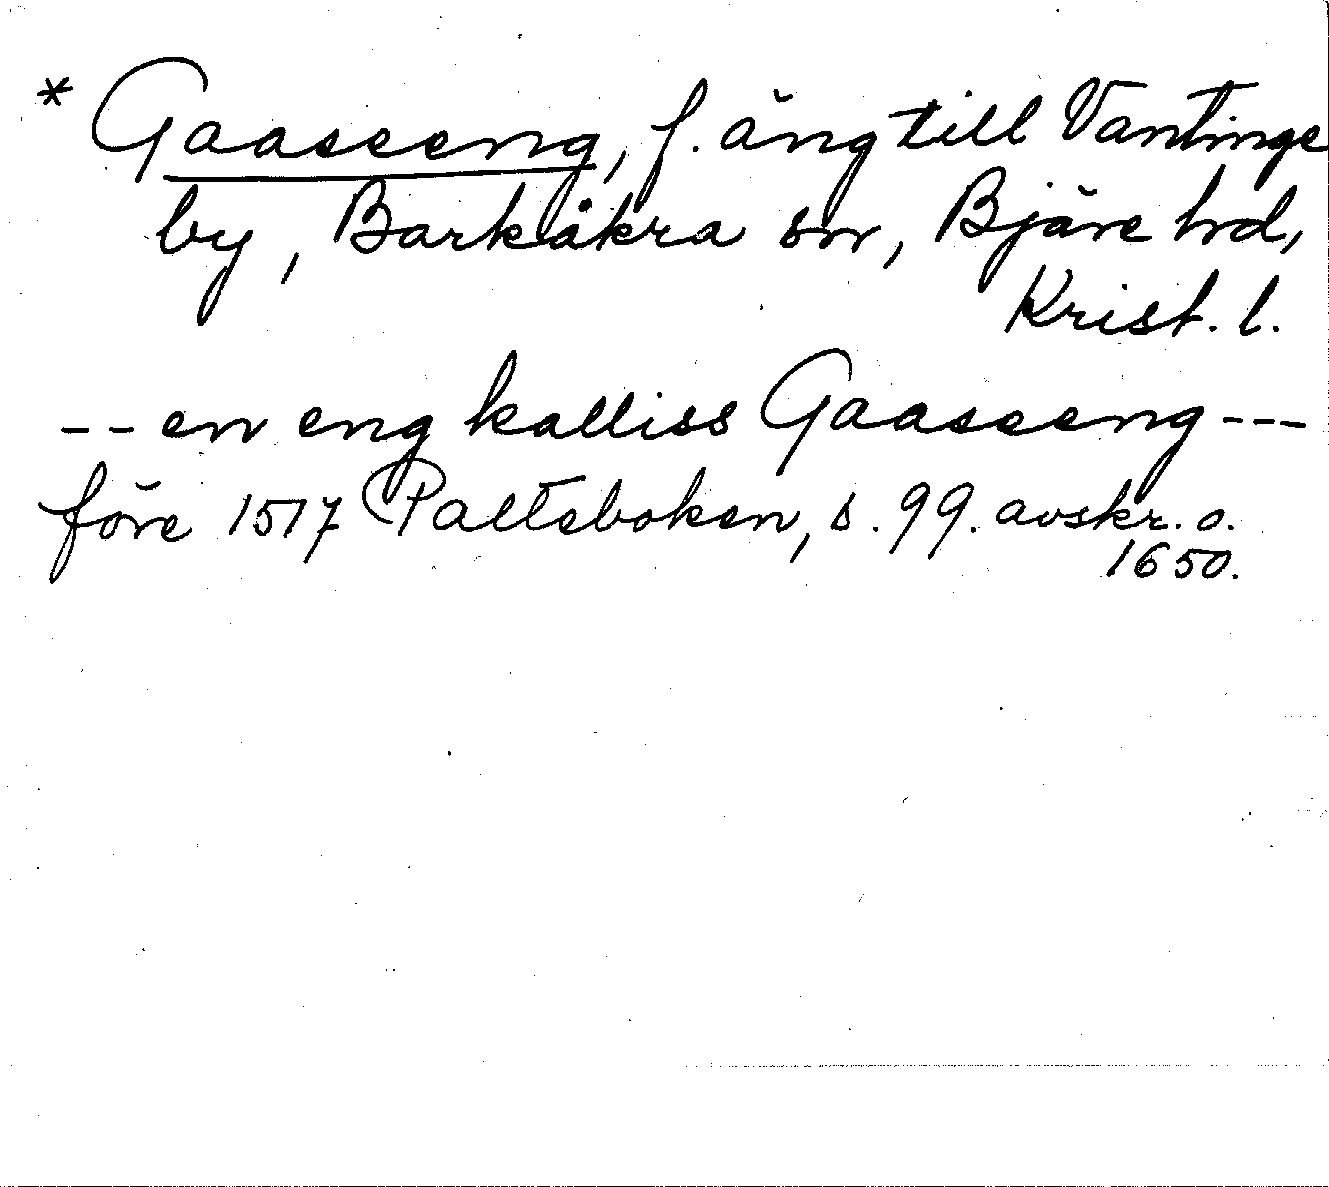 * Gaaseeng, f. äng till Vantinge
by, Barkåkra sn, Bjäre hd,
Krist. l.
-- en eng kalliss Gaaseeng ---
före 1517 Palteboken, s. 99. avskr. o.
1650.